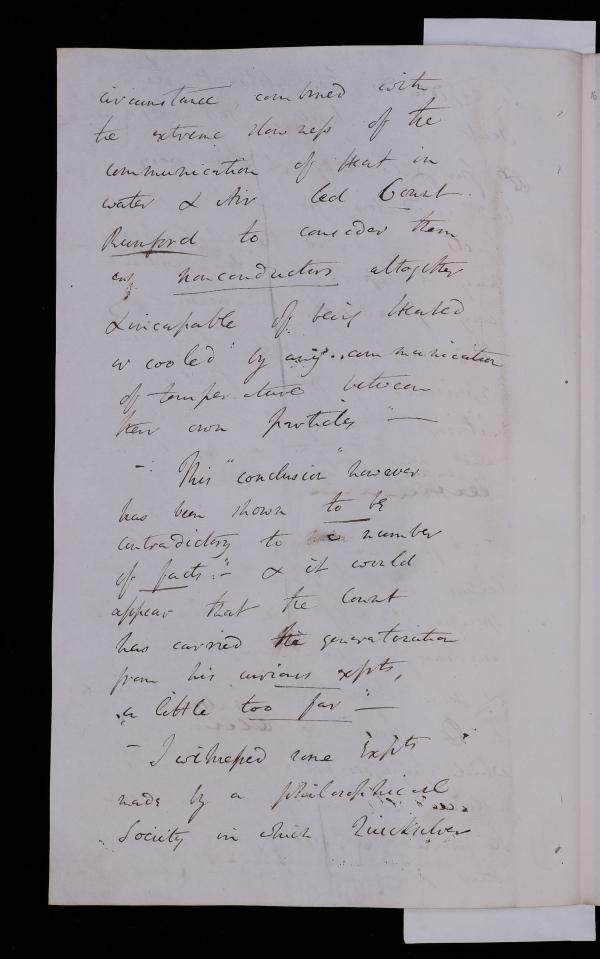 circumstance, combined with
the extreme slowness of the
communication of Heat in
water & Air led Count
Rumford to consider them
as nonconductors altogether
& incapable of being Heated
or cooled by any communication
of temperature between
their own particles" —
- This "conclusion" however
has been shown to be
contradictory to a number
of facts:"- & it would
appear that the Count
has carried the generalization
from his curious expts,
"a little too far" —
- I witnessed some Expts
made by a philosophical
Society in which Quicksilver